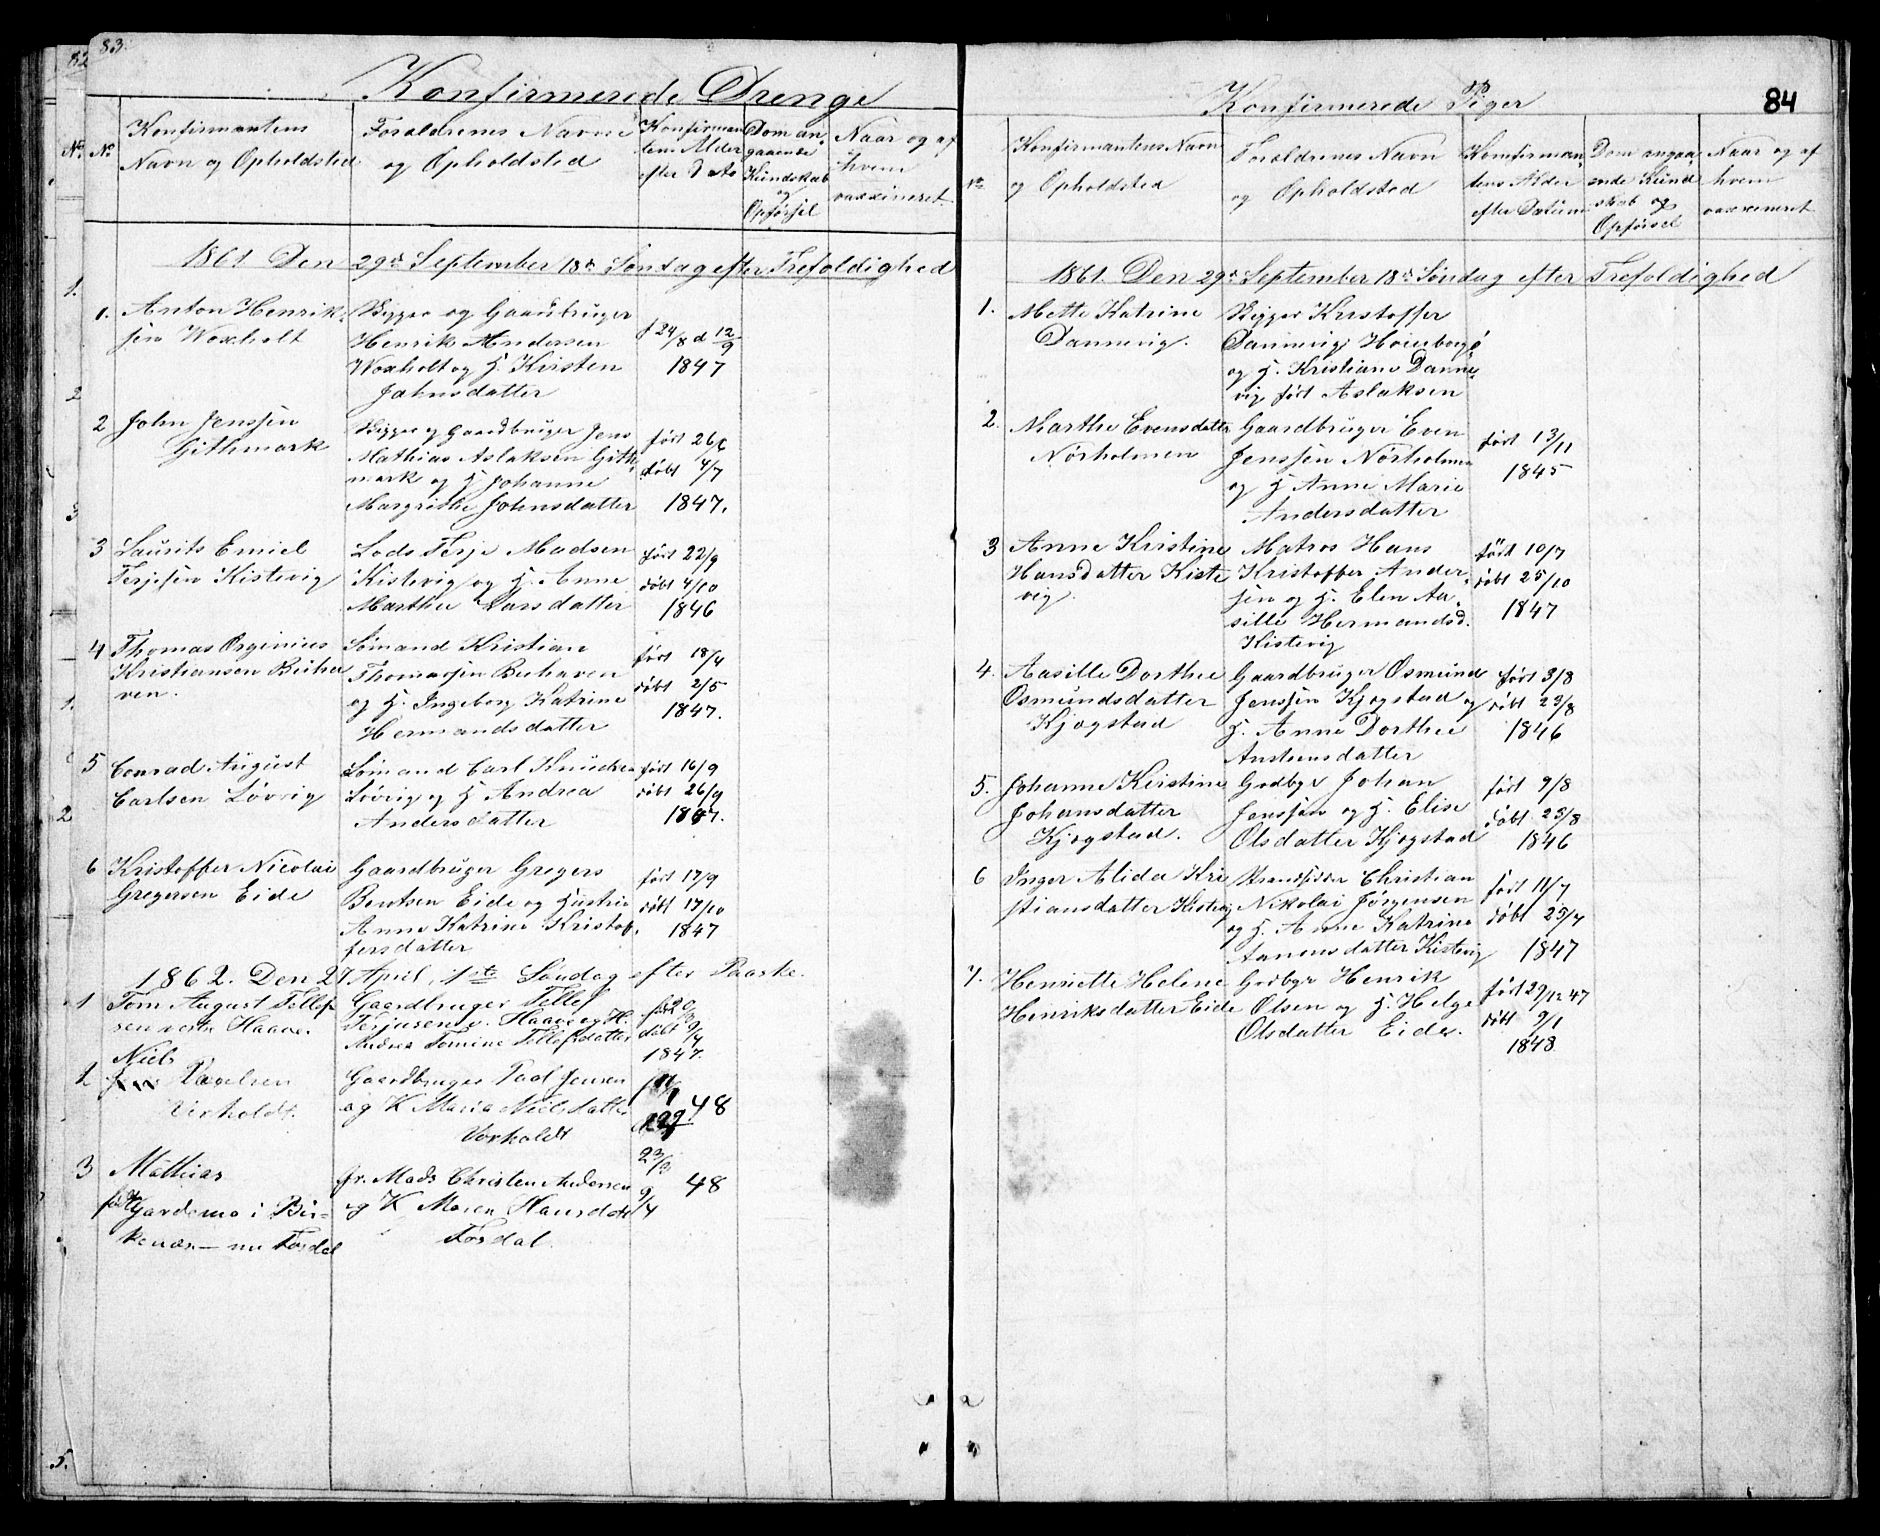 82
83.
Konfirmerede Drenge
No. No
Konfirmantens
Navn og Opholdsted
Forældrenes Navne
og Opholdsted
Konfirman
tens Alder
efter Dato
Dom an-
gaaende
Kundskab
og
Opførsel
Naar og af
hvem
vaxineret.
1861 Den 29de September 18de Søndag efter Trefoldighed
1. Anton Henrik-
sen Woxholt
Skipper og Gaardbruger
Henrik Andersen
Woxholt og H. Kirsten
Jahnsdatter
f 24/8 d 12/9
1847
2 John Jenssen
Githmark
Skipper og Gaardbruger Jens
Mathias Aslaksen Gith-
mark og H Johanne
Margrethe Johnsdatter
født 26/6
døbt 4/7
1847.
3 Laurits Emiel
Terjesen Kistevig
Lods Terje Madsen
Kistevig og H. Anne
Marthe Larsdatter
født 22/9
døbt 4/10
1846
4 Thomas Orginius
Kristiansen Buha
ven.
Sømand Kristian
Thomassen Buhaven
og H. Ingeborg Katrine
Hermandsdatter
født 18/4
døbt 2/5
1847.
5 Conrad August
Carlsen Løvvig
Sømand Carl Knudsen
Løvvig og H Andrea
Andersdatter
født 16/9
døbt 26/9
1847.
6 Kristoffer Nicolai
Gregersen Eide
Gaardbruger Gregers
Bentsen Eide og Hustru
Anne Katrine Kristof-
fersdatter
født 17/9
døbt 17/10
1847
1862. Den 27 April, 1ste Søndag efter Paaske.
1 Tom August Tellef
sen Haave.
Gaardbruger Tellef
Terjesen v. Haave og H.
Andrea Tomine Tellefsdatter
1847.
2 Niels
Paulsen
Vorholdt.
Gaardbruger Paul Jensen
og K Maria Nielsdatter
Vorholdt
48
3 Mathias
født Gardemo i Bir-
kenæs – nu Tordal
fr. Mads Christen Andersen
og K Maren Hansdatt
Tordal.
23/3
9/4
48
1.
2
3
1.
2
5.
84
Konfirmerede Piger
No
Konfirmantens Navn
og Opholdsted
Forældrenes Navn
og Opholdsted
Konfirman-
tens Alder
efter Datum
Dom angaa-
ende Kund
skab og
Opførsel
Naar og af
hvem
vaxineret
1861. Den 29de September 18de Søndag efter Trefoldighed
1. Mette Katrine
Dannevig.
Skipper Kristoffer
Dannevig Hoieborg
og H. Kristiane Danne-
vig født Aslaksen
2. Marthe Evensdatter
Nörholmen
Gaardbruger Even
Jenssen Nörholmen
og H Anne Marie
Andersdatter
født 13/11
1845
3 Anne Kristine
Hansdatter Kiste
vig.
Matros Hans
Kristoffer Ander-
sen og H. Elen Aa-
sille Hermandsd.
Kistevig
født 10/7
døbt 25/10
1847
4. Aasille Dorthe
Osmundsdatter
Kjøgstad
Gaardbruger Osmund
Jenssen Kjøgstad og
H. Anne Dorthea
Anstensdatter
født 3/8
døbt 23/8
1846
5. Johanne Kirstine
Johansdatter
Kjøgstad.
Grdbgr Johan
Jenssen og H. Elise
Olsdatter Kjøgstad
født 9/8
døbt 23/8
1846
6 Inger Alida Kri
stiansdatter Kistevig
Strandsidder Christian
Nikolai Jörgensen
og H. Anne Katrine
Aanensdatter Kistevig
født 11/7
døbt 25/7
1847
7. Henriette Helene
Henriksdatter Eide
Grdbgr Henrik
Olsen og H. Helge
Olsdatter Eide.
født 29/12 47
døbt 9/1
1848